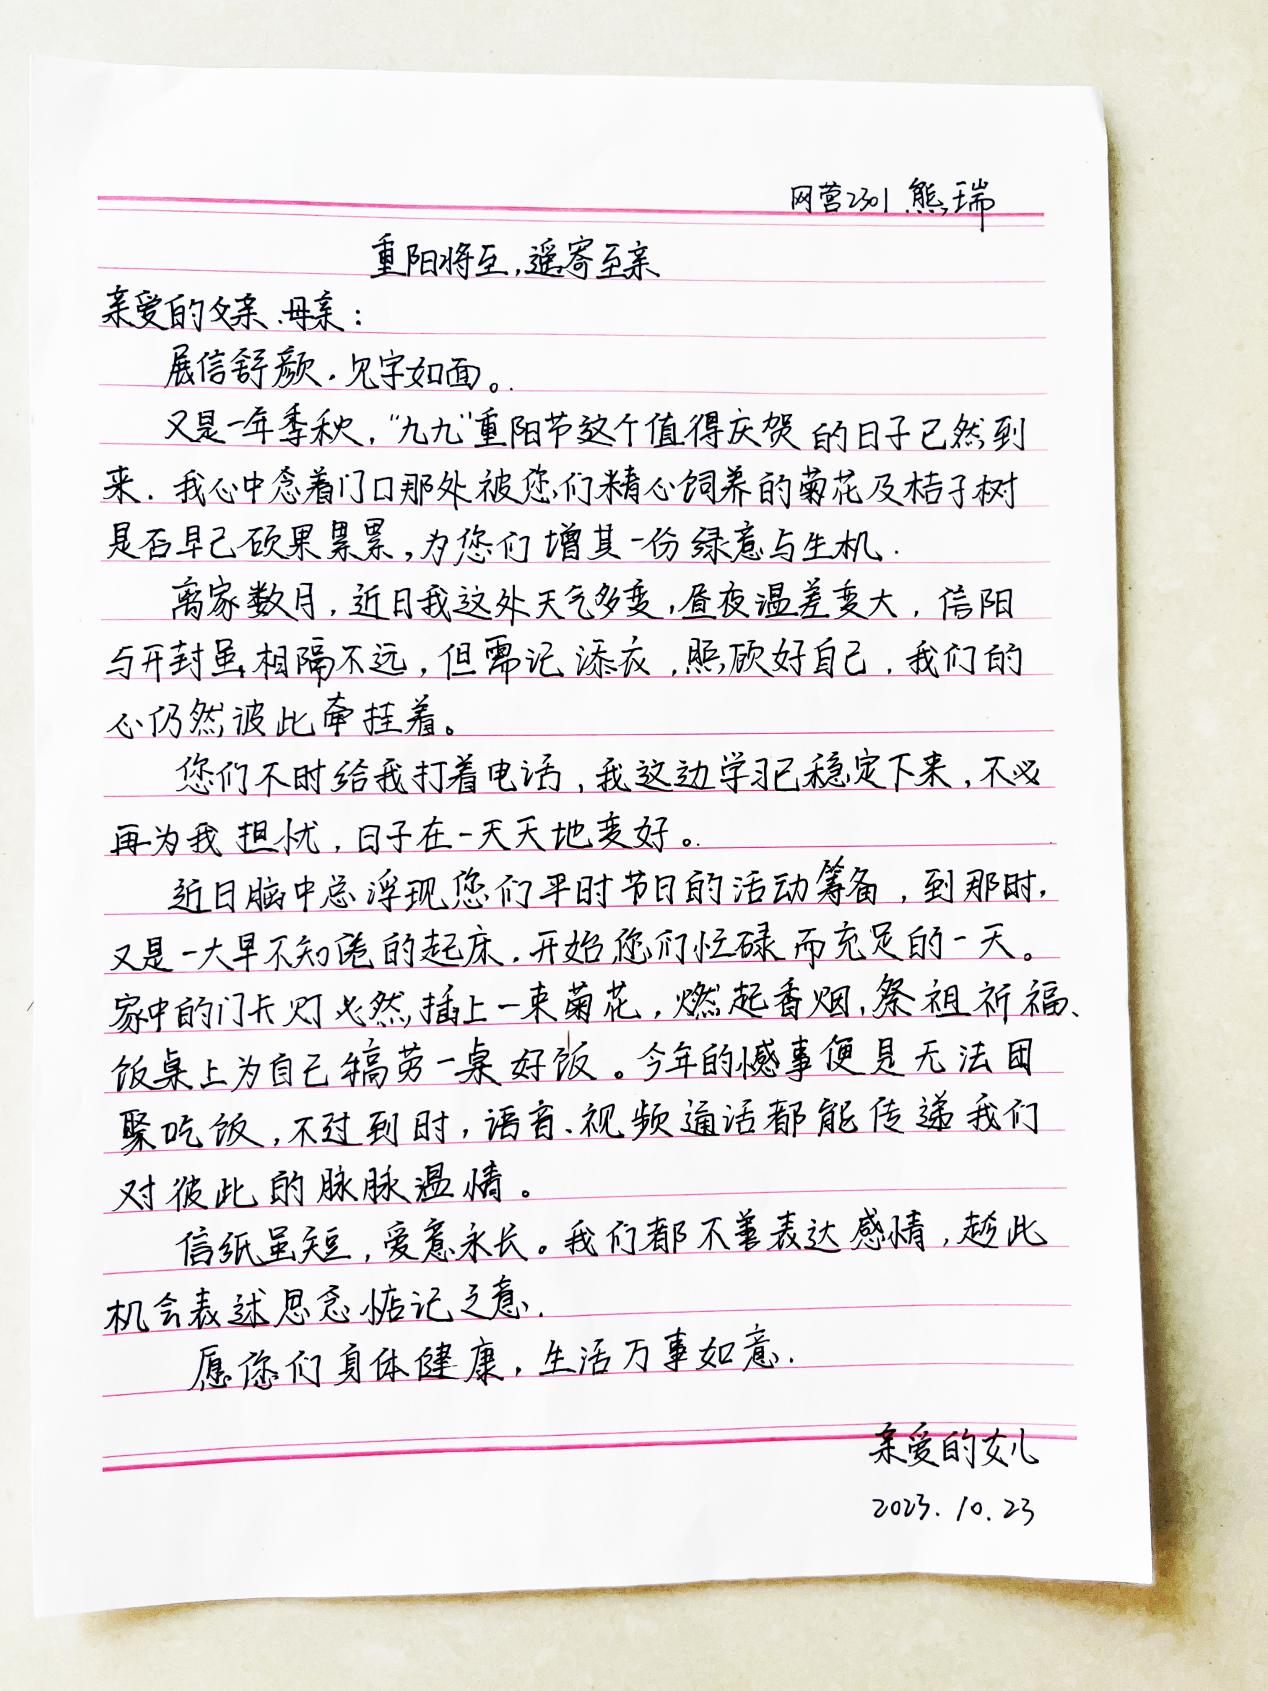 网营2301 熊瑞
重阳将至,遥寄至亲
亲爱的父亲、母亲:
展信舒颜.见字如面。
又是一年季秋,“九九”重阳节这个值得庆贺的日子已然到
来.我心中念着门口那处被您们精心饲养的菊花及桔子树
是否早已硕果累累,为您们增其一份绿意与生机.
离家数月,近日我这处天气多变,昼夜温差变大,信阳
与开封虽相隔不远,但需记添衣,照顾好自己,我们的
心仍然彼此牵挂着。
您们不时给我打着电话,我这边学习已稳定下来,不必
再为我担忧,日子在一天天地变好。
近日脑中总浮现您们平时节日的活动筹备,到那时,
又是一大早不知倦的起床.开始您们忙碌而充足的一天。
家中的门卡灯必然插上一束菊花,燃起香烟,祭祖祈福、
饭桌上为自己犒劳一桌好饭。今年的憾事便是无法团
聚吃饭,不过到时,语音、视频通话都能传递我们
对彼此的脉脉温情。
信纸虽短,爱意永长。我们都不善表达感情,趁此
机会表述思念惦记之意.
愿您们身体健康,生活万事如意.
亲爱的女儿
2023.10.23